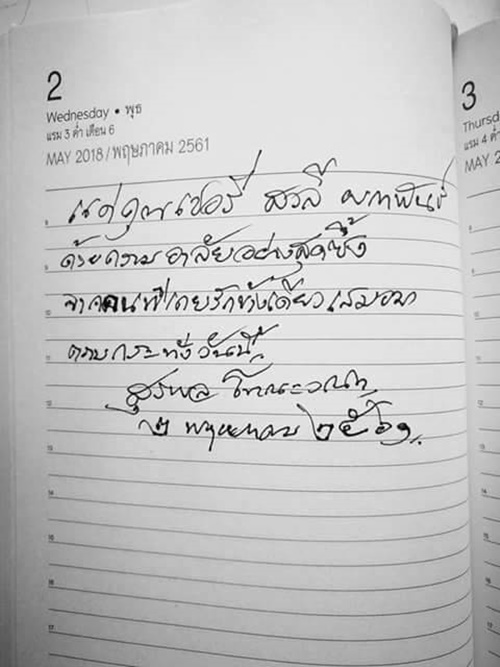 2
Wednesday • พุธ
แรม 3 ค่ำ เดือน 6
MAY 2018/พฤษภาคม 2561
แด่คุณเชอรี่ สวลี ผกาพันธ์
ด้วยความอาลัยอย่างสุดซึ้ง
จากคนที่เคยรักข้างเดียวเสมอมา
ตราบกระทั่งวันนี้
สุรพล โทณะวณิก
๒ พฤษภาคม ๒๕๖๑
3
Thursd
แรม 4 ค่ำ
MAY 2
9
10
11
12
13
14
15
16
17